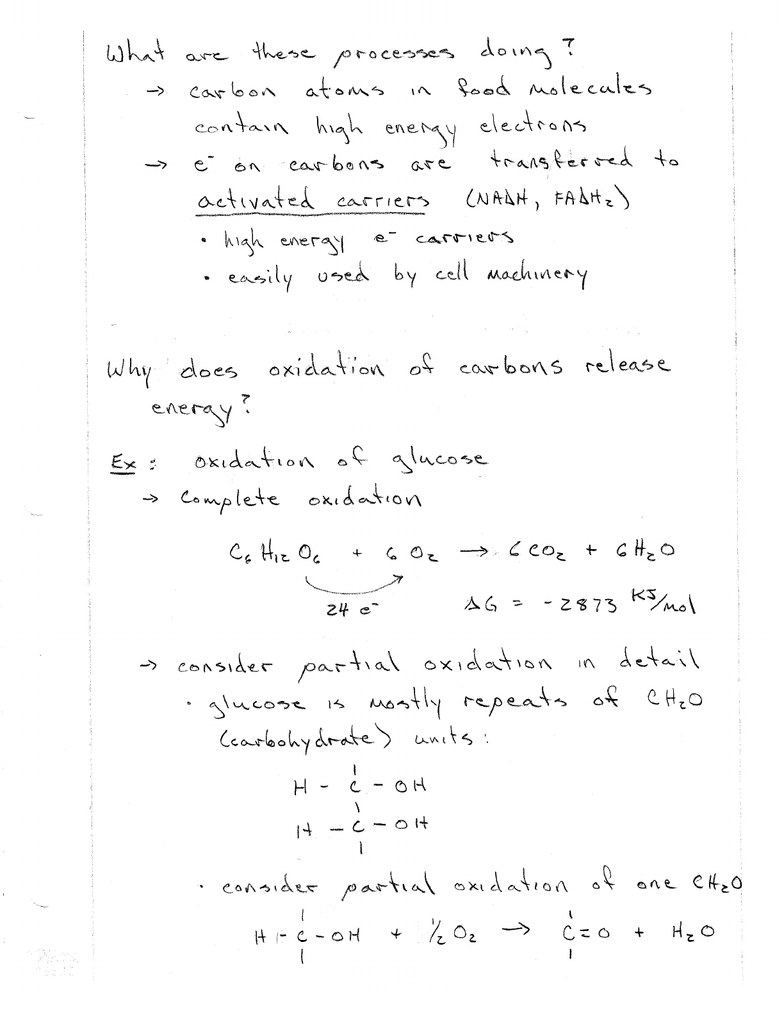 What are these processes doing?
→ carbon atoms in food molecules
contain high energy electrons
→ e⁻ on carbons are transferred to
activated carriers (NADH, FADH₂)
• high energy e⁻ carriers
• easily used by cell machinery
Why does oxidation of carbons release
energy?
Ex: oxidation of glucose
→ complete oxidation
C₆H₁₂O₆ + 6 O₂ → 6 CO₂ + 6 H₂O
24 e⁻ ΔG = -2873 KJ/mol
→ consider partial oxidation in detail
• glucose is mostly repeats of CH₂O
(carbohydrate) units:
H - C - OH
H - C - OH
• consider partial oxidation of one CH₂O
H - C - OH + ½ O₂ → C = O + H₂O